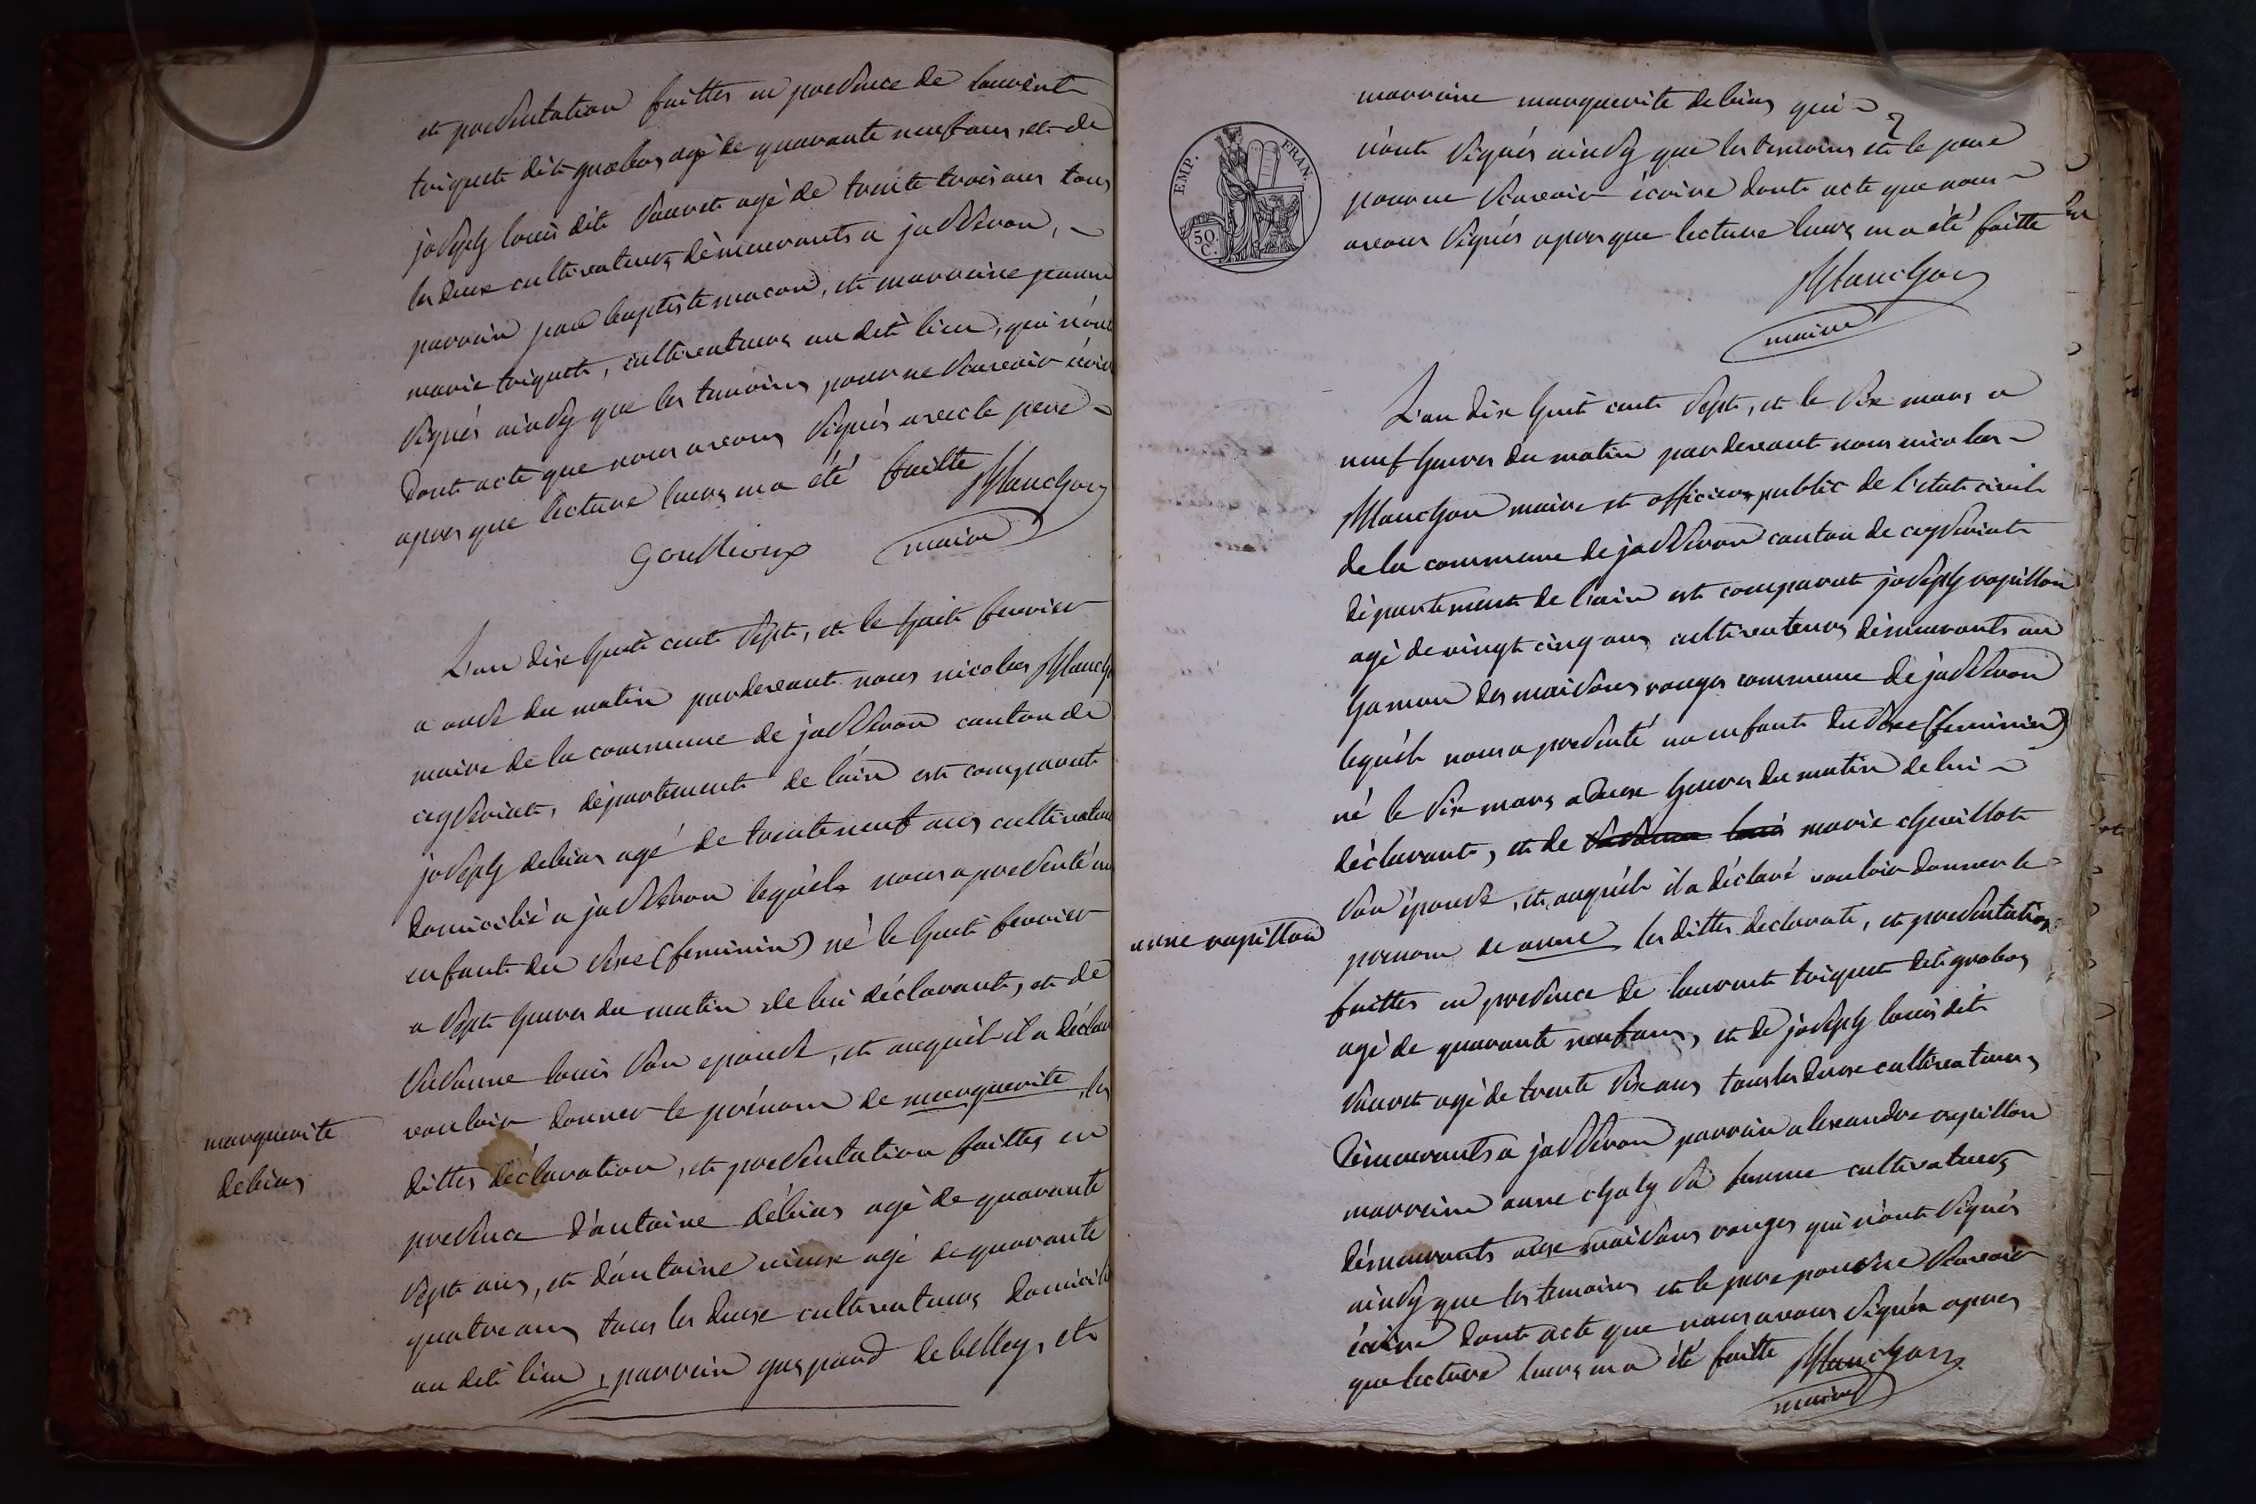 et presentation faittes en presence de laurent
triquet dit grobas agé de quarante neuf ans, et de
joseph louis dit sauvet agé de trente trois ans tous
les deux cultivateurs démeurants a jasseron,
parrain jean baptiste macon, et marraine jeanne
marie triquet, cultivateurs au dit lieu, qui n'ont
signés ainsy que les temoins pour ne scavoir écrire
dont acte que nous avons signés avec le pere
apres que lecture leurs en a été faitte
maire
L'an dix huit cent sept, et le huit fevrier
a onze du matin pardevant nous nicolas
maire de la commune de jasseron canton de
ceyseriat, département de l'ain est comparut
joseph debias agé de trente neuf ans cultivateur
domicilié a jasseron lequel nous a presenté un
enfant du sexe (feminin) né le huit fevrier
a sept heures du matin de lui déclarant, et de
susanne louis son epouse, et auquel il a déclaré
vouloir donner le prénom de marguerite les
marguerite
debias
dittes déclaration, et presentation faittes en
presence d'antoine débias agé de quarante
sept ans, et d'antoine agé de quarante
quatre ans tous les deux cultivateurs domicilié
au dit lieu, parrain gaspard debelley, et
EMP. FRAN.
50 C.
marraine marguerite debias qui
n'ont signés ainsy que les temoins et le pere
pour ne scavoir écrire dont acte que nous
avons signés apres que lecture leurs en a été faitte
maire
L'an dix huit cent sept, et le six mars a
neuf heures du matin pardevant nous nicolas
maire et officier public de l'etat civil
de la commune de jasseron canton de ceyseriat
département de l'ain est comparut joseph rapillon
agé de vingt cinq ans cultivateurs démeurants au
hameau des maisons rouges commune de jasseron
lequél nous a presenté un enfant du sexe (feminin)
né le six mars a deux heures du matin de lui
déclarant, et de marie chevillot
son épouse, et auquél il a déclaré vouloir donner le
anne rapillon
prenom de anne les dittes declarate, et presentation
faittes en presence de laurent triquet dit grobas
agé de quarante neuf ans, et de joseph louis dit
sauvet agé de trente six ans tous les deux cultivateurs
démeurants a jasseron parrain alexandre rapillon
marraine anne chaly sa femme cultivateurs
démeurants aux maisons rouges qui n'ont signés
ainsy que les temoins et le pere pour ne scavoir
écrire dont acte que nous avons signés apres
que lecture leurs en a été faitte
maire